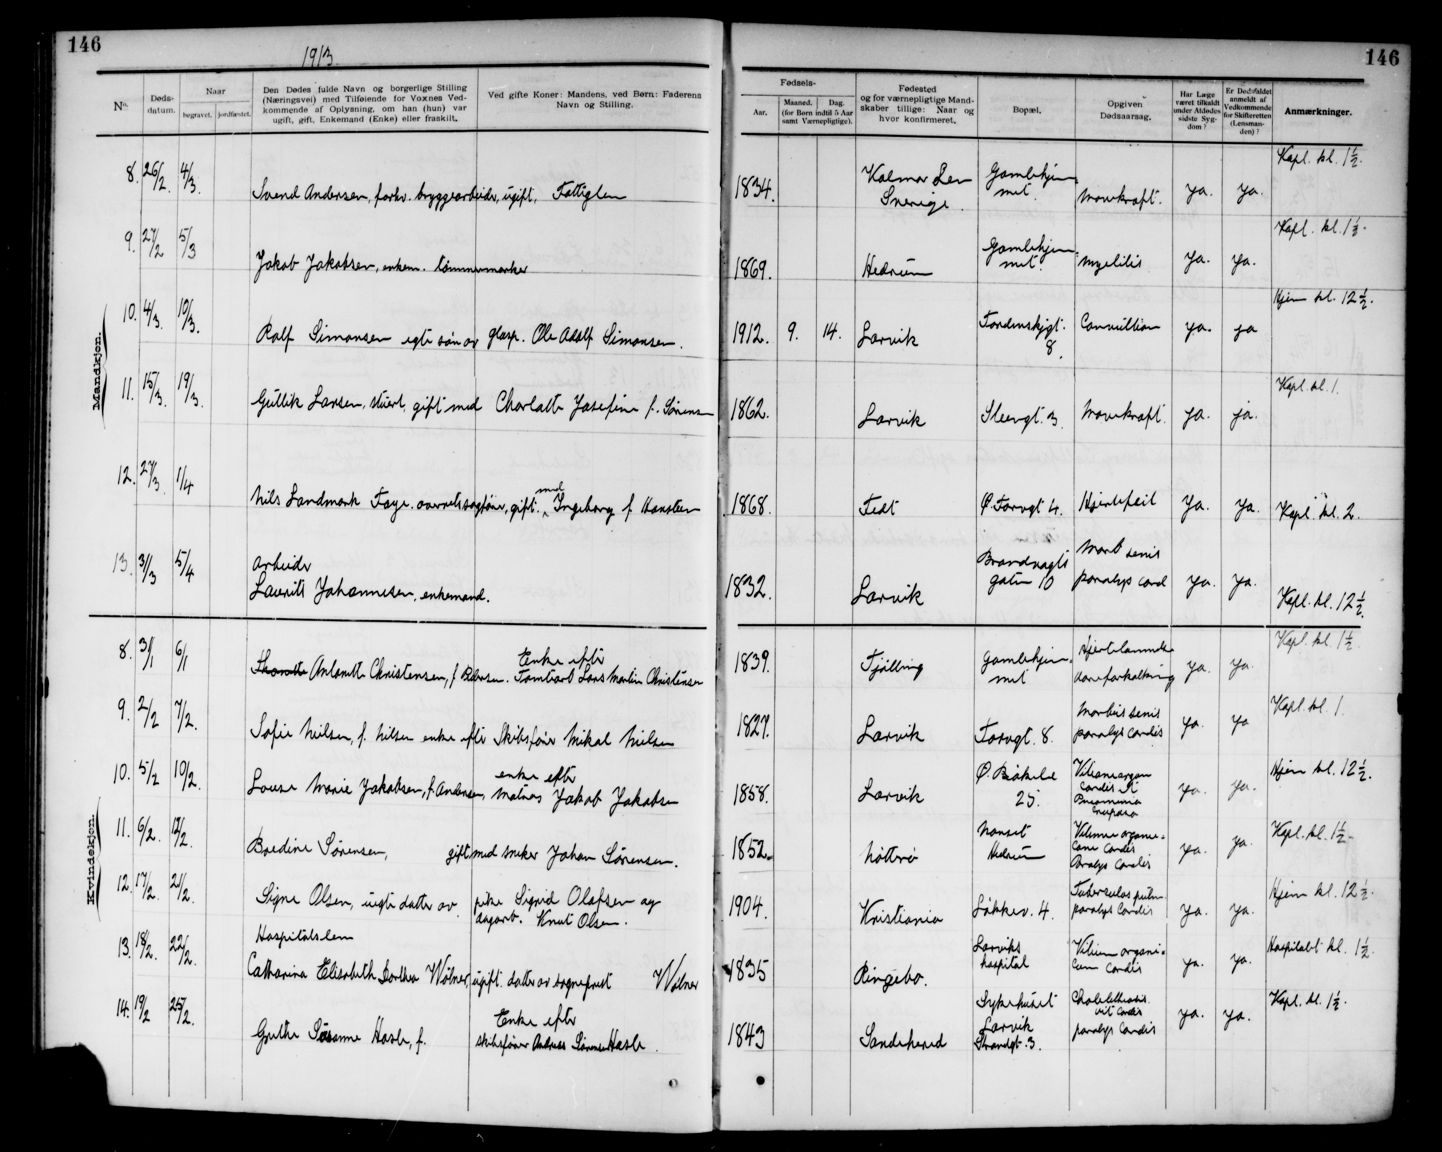 146
1913
No.
Døds-datum.
Naar
begravet.
jordfæstet.
Den Dødes fulde Navn og borgerlige Stilling
(Næringsvei) med Tilføiende for Voxnes Ved-
kommende af Oplysning, om han (hun) var
ugift, gift, Enkemand (Enke) eller fraskilt.
Ved gifte Koner: Mandens, ved Børn: Faderens
Navn og Stilling.
146
Fødsels-
Aar.
Maaned.
Dag.
(for Børn indtil 5 Aar
samt Værnepligtige).
Fødested
og for værnepligtige Mand-
skaber tillige: Naar og
hvor konfirmeret.
Bopæl.
Opgiven
Dødsaarsag.
Har Læge
været tilkaldt
under Afdødes
sidste Syg-
dom?
Er Dødsfaldet
anmeldt af
Vedkommende
for Skifteretten
(Lensman-
den)?
Anmærkninger.
Mandkjøn.
8. 26/2. 4/3. Svend Andersen, forhv. bryggearbeider, ugift. Fattiglem 1834. Kalmar Len Sverige. Gamlehjemmet. Marekraft. ja. ja. Kapl. kl. 1 1/2.
9. 27/2 5/3 Jakob Jakobsen, enkem. tømmermerker 1869. Hedrum Gamlehjemmet. myelitis ja. ja. Kapl. kl. 1 1/2.
10. 4/3. 10/3. Rolf Simonsen egte søn av glasp. Ole Adolf Simonsen. 1912. 9. 14. Larvik 8. ja. ja Hjem kl. 12 1/2.
11. 15/3. 19/3. Gullik Larsen, stuert, gift med Charlotte Josefine f. Sørensen 1862. Larvik Steengt. 3. Marekraft. ja. ja. Kapl. kl. 1.
12. 27/3. 1/4 Nils Landmark Faye. overretssagfører, gift. med Ingeborg f Hansteen 1868. Ø. Torvgt 4. Hjertefeil ja. ja. Kapl. kl. 2.
13. 31/3 5/4 arbeider
Laurits Johannesen, enkemand. 1832. Larvik Brandvagts gaten 10 Morb senis paralys cord ja. ja. Kapl. kl. 12 1/2.
Kvindekjøn.
8. 31/1 6/1 Christensen, f. Enke efter Lars Martin Christensen 1839. Tjølling Gamlehjemmet Hjertelammelse ja. ja. Kapl. kl. 1 1/2.
9. 2/2 7/2. Sofie Nilsen, f. Nilsen enke efter Skibsfører Mikal Nielsen 1827. Larvik Torvgt. 8. Morbus senis paralys cordis ja. ja Kapl. kl. 1.
10. 5/2 10/2. Louise Marie Jakobsen, f. Andersen, enke efter matros Jakob Jakobsen 1858. Larvik Ø. Bøkelie 25. Vitium organ cordis Pneumonia ja. ja. Hjem kl. 12 1/2.
11. 6/2. 12/2. Bredine Sørensen, gift med sneker Johan Sørensen. 1852. Nøtterø Nanset Hedrum Vitium organi-cum cordis Paralys Cordis ja. ja. Kapl. kl. 1 1/2.
12. 17/2. 21/2. Signe Olsen, uegte datter av pike Sigrid Olafsen og
dagarb. Knut Olsen. 1904. Kristiania Løkkev. 4. Tuberculos pulm. paralys Cordis ja. ja. Hjem kl. 12 1/2.
13. 18/2. 22/2. Hospitalslem
Catharina Elisabeth Dorthea Wølner, ugift. datter av sogneprest Wølner 1835 Ringebo. Larviks hospital Vitium organi-cum Cordis ja. ja. Hospitalet kl. 1 1/2.
14. 19/2 25/2. Grethe Susanne Hasle, f. Enke efter
skibsfører Andreas Sørensen Hasle. 1843 Sandeherred Sykehuset Larvik Strandgt. 3. Cholelithiasis vit Cordis paralys Cordis ja. ja. Kapl. kl. 1 1/2.